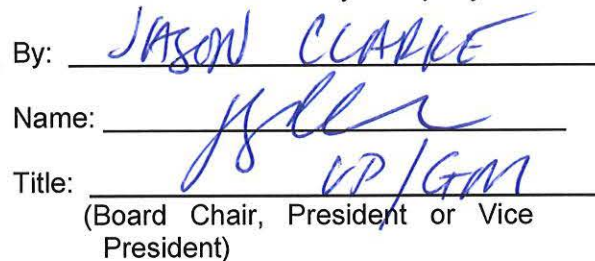 By: JASON CLARKE
Name:
Title: VP/GM
(Board Chair, President or Vice
President)